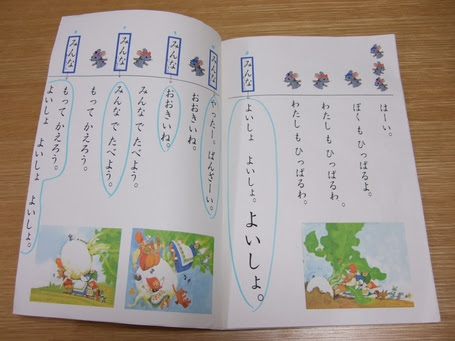 はーい。
ぼく も ひっぱるよ。
わたし も ひっぱるわ。
わたし も ひっぱるわ。
みんな
よいしょ よいしょ。よいしょ。
みんな
やったー。ばんざーい。
おおきいね。
みんな
おおきいね。
みんな で たべよう。
みんな
みんな で たべよう。
もって かえろう。
みんな
もって かえろう。
よいしょ よいしょ よいしょ。